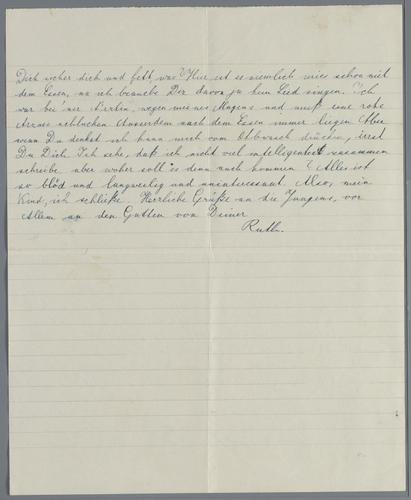 Dich sicher dick und fett, was? Hier ist es ziemlich mies schon mit
dem Essen, na ich brauche Dir davon ja kein Lied singen. Ich
war bei 'ner Ärztin, wegen meines Magens und muß eine rohe
schlucken. Ausserdem nach dem Essen immer liegen. Aber
wenn Du denkst ich kann mich vom drücken, irrst
Du Dich. Ich sehe, daß ich nicht viel intelligentes zusammen
schreibe aber woher soll es denn auch kommen? Alles ist
so blöd und langweilig und uninteressant. Also, mein
Kind, ich schließe. Herzliche Grüße an die Jungens, vor
Allem an den Gatten von Deiner
Ruth.